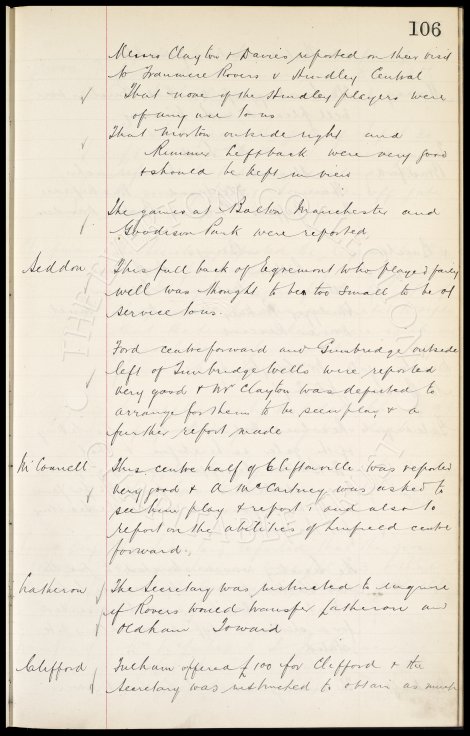 106
Messrs Clayton & Davies reported on their visit
to Tranmere Rovers v Hindley Central
That none of the Hindley players were
of any use to us
That Morton outside right and
Rimmer Left back were very good
& should be kept in view
The games at Bolton Manchester and
Goodison Park were reported
Seddon This full back of Egremont who played fairly
well was thought to be too small to be of
service to us.
Ford centre forward and Gumbridge outside
left of Tunbridge Wells were reported
very good & Mr Clayton was deputed to
arrange for them to be seen play & a
further report made
McConnell This centre half of Cliftonville was reported
very good & A McCartney was asked to
see him play & report, and also to
report on the abilities of Linfield centre
forward.
Latheron The Secretary was instructed to enquire
if Rovers would transfer Latheron and
Oldham Toward
Clifford Fulham offered £100 for Clifford & the
Secretary was instructed to obtain as much